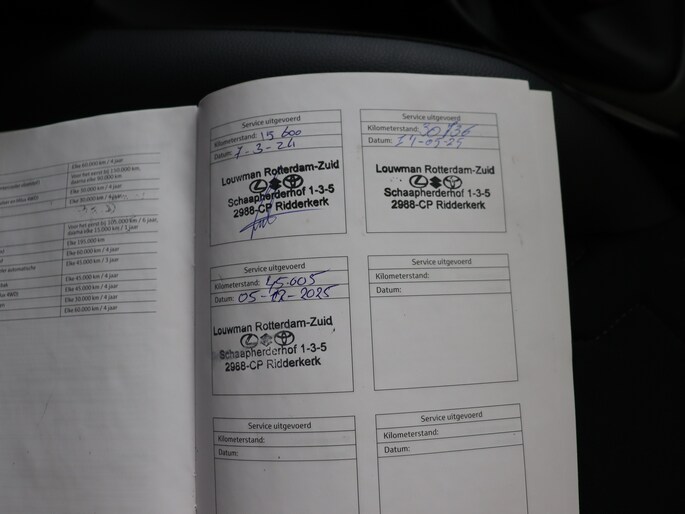 Elke 60.000 km / 4 jaar
Elke 30.000 km / 4 jaar
Elke 195.000 km
Elke 60.000 km / 4 jaar
Elke 45.000 km / 3 jaar
Elke 45.000 km / 4 jaar
Elke 45.000 km / 4 jaar
Elke 30.000 km / 4 jaar
Elke 60.000 km / 4 jaar
Service uitgevoerd
Kilometerstand: 15 600
Datum: 7-3-24
Louwman Rotterdam-Zuid
Schaapherderhof 1-3-5
2988-CP Ridderkerk
Service uitgevoerd
Kilometerstand: 30 736
Datum:
Louwman Rotterdam-Zuid
Schaapherderhof 1-3-5
2988-CP Ridderkerk
Service uitgevoerd
Kilometerstand: 45.605
Datum: 05-12-2025
Louwman Rotterdam-Zuid
Schaapherderhof 1-3-5
2988-CP Ridderkerk
Service uitgevoerd
Kilometerstand:
Datum:
Service uitgevoerd
Kilometerstand:
Datum:
Service uitgevoerd
Kilometerstand:
Datum: